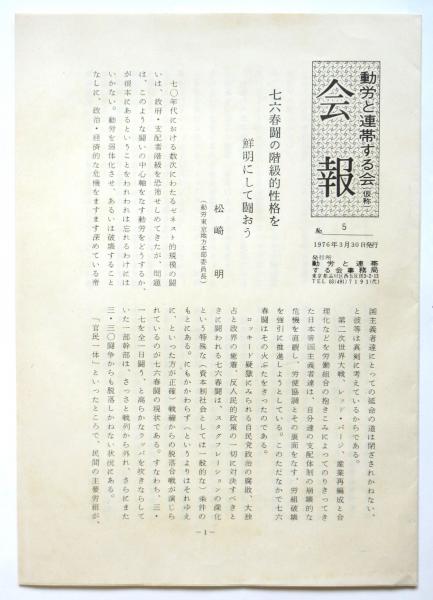 動労と連帯する会(仮称)
会報
№ 5
1976年3月30日発行
発行所
動労と連帯
する会事務局
東京都品川区西五反田3-2-13
TEL 03(491)7191(代)
七六春闘の階級的性格を
鮮明にして闘おう
松崎 明
(動労東京地方本部委員長)
七〇年代における数次にわたるゼネスト的規模の闘
いは、政府・支配者階級を恐怖せしめてきたが、問題
は、このような闘いの中心軸をなす動労をどうするか、
が根本にあるということをわれわれは忘れるわけには
いかない。動労を弱体化させ、あるいは破壊すること
なしに、政治・経済的な危機をますます深めている帝
国主義者達にとっての延命の道は閉ざされかねない、
と彼等は真剣に考えているからである。
第二次世界大戦、レッド・パージ、産業再編成と合
理化などを労働組合の抱きこみによってのりきってき
た日本帝国主義者達は、自分達の支配体制の崩壊的な
危機を直視し、労使協調とその裏面をなす、労組破壊
を強引に推進しようとしている。このただなかで七六
春闘はその火ぶたをきったのである。
ロッキード疑獄にみられる自民党政治の腐敗、大独
占と政界の癒着、反人民的政策の一切に対決すべきと
きに闘われる七六春闘は、スタグフレーションの深化
という特殊な(資本制社会としては一般的な)条件の
もとにある。にもかかわらず(というよりはそれゆえ
に、といった方が正確)戦線からの脱落合戦が演じら
れているのが七六春闘の現状である。すなわち、三・
一七を全一日闘う、と高らかなラッパを吹きならして
いた一部幹部は、さっさと戦列から外れ、さらにまた
三・三〇闘争からも脱落しかねない状況にある。
「官民一体」といったところで、民間の主要労組が、
－1－